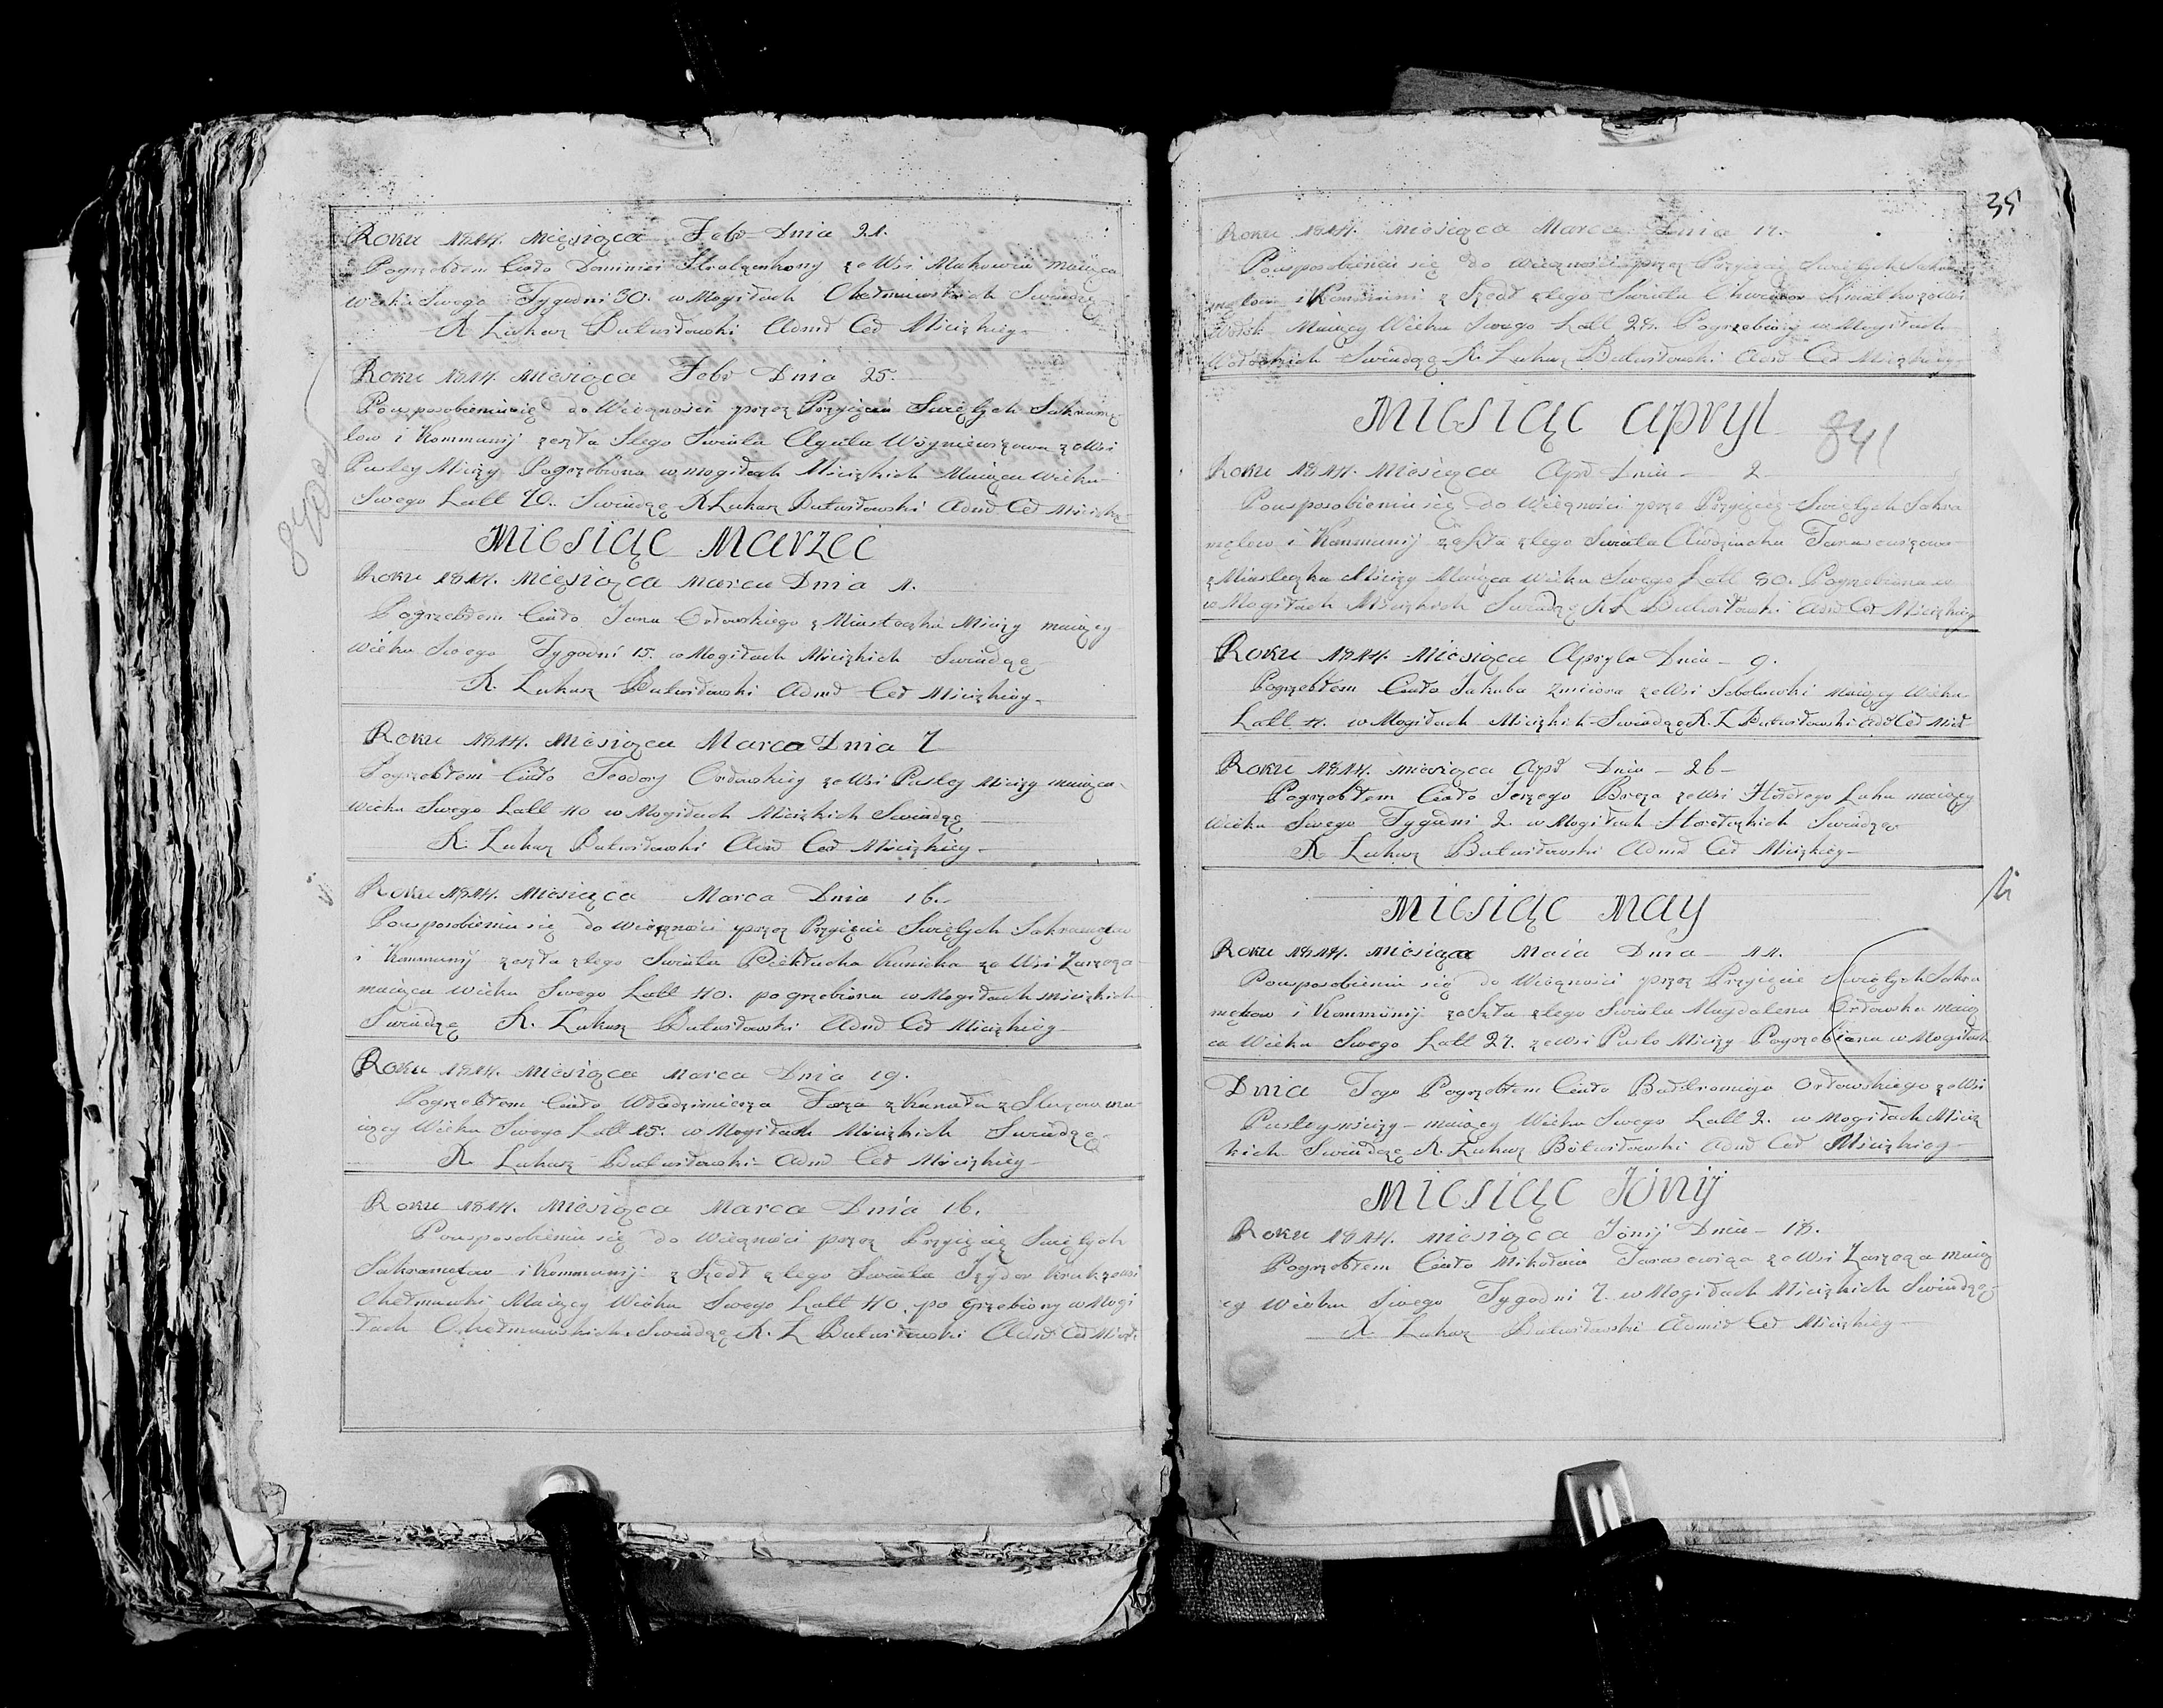 Roku 1814. Miesiąca Febr Dnia 21.
Pogrzebłem Ciało Dominiei ze Wsi Makowia Maiąca
Wieku Swego Tygodni 30. w Mogiłach Chełmawskich Swiadczę
X. Łukasz Bułwidowski Admd Ced Mścizkiey
Roku 1814. Miesiąca Febr Dnia 25.
Pousposobieniu się do Wieczności przez Przyięcia Swiętych Sakrame
tow i Kommunij zeszła Stego Swiata Agata ze Wsi
Pustey Mścizy Pogrzebiona w mogiłach Mścizkich Maiąca Wieku
Swego Latt 70. Swiadczę X Łukasz Bułwidowski Admd Ced Mścizk
Miesiąc Marzec
Roku 1814. Miesiąca Marca Dnia 1.
Pogrzebłem Ciało Jana Orłowskiego z Miasteczka Mścizy maiącey
Wieku Swego Tygodni 15. w Mogiłach Mścizkich Swiadczę
X. Łukasz Bułwidowski Admd Ced Mścizkiey
Roku 1814. Miesiąca Marca Dnia 7
Pogrzebłem Ciało Teodory Orłowskiey ze Wsi Pustey Mścizy maiąca
Wieku Swego Latt 40 w Mogiłach Mścizkich Swiadczę
X. Łukasz Bułwidowski Admd Ced Mścizkiey
Roku 1814. Miesiąca Marca Dnia 16.
Pousposobieniu się do Wieczności przez Przyięcie Swiętych Sakrametow
i Kommunij zeszła z tego Swiata Kunicka ze Wsi Zarzecza
maiąca Wieku Swego Latt 40. pogrzebiona w Mogiłach Mścizkich
Swiadczę X. Łukasz Bułwidowski Admd Ced Mścizkiey
Roku 1814. Miesiąca Marca Dnia 19.
Pogrzebłem Ciało Włodzimierza z Kanała z ma
iący Wieku Swego Latt 15. w Mogiłach Mścizkich Swiadczę
X. Łukasz Bułwidowski Admd Ced Mścizkiey
Roku 1814. Miesiąca Marca Dnia 16.
Pousposobieniu się do Wieczności przez Przyięcię Swiętych
Sakrametow i Kommunij z Szedł z tego Swiata Izydor Kruk ze Wsi
Chełmawki Maiący Wieku Swego Latt 40. pogrzebiony w Mogi
łach Chełmawskich Swiadczę X. Ł Bułwidowski Admd Ced Mścizk
35
Roku 1814. Miesiąca Marca Dnia 17.
Pousposobieniu się do Wieczności przez Przyięcie Swiętych Sakra
mętow i Kommunij z Szedł z tego Swiata
Maiący Wieku Swego Latt 28. Pogrzebiony w Mogiłach
Swiadczę X. Łukasz Bułwidowski Admd Ced Mścizkiey
Miesiąc Apryl
841
Roku 1814. Miesiąca Apr Dnia 2
Pousposobieniu się do Wieczności przez Przyięcię Swiętych Sakra
mętow i Kommunij zeszła z tego Swiata
z Miasteczka Mścizy Maiąca Wieku Swego Latt 80. Pogrzebiona w
w Mogiłach Mścizkich Swiadczę X Ł Bułwidowski Admd Ced Mścizkiey
Roku 1814. Miesiąca Apryla Dnia 9.
Pogrzebłem Ciało Jakuba ze Wsi Maiący Wieku
Latt 4. w Mogiłach Mścizkich Swiadczę X. Ł Bułwidowski Admd Ced Mści
Roku 1814. Miesiąca Apr Dnia 26
Pogrzebłem Ciało Jerzego ze Wsi maiący
Wieku Swego Tygodni 2. w Mogiłach Swiadczę
X Łukasz Bułwidowski Admd Ced Mścizkiey
Miesiąc May
Roku 1814. Miesiąca Maia Dnia 11.
Pousposobieniu się do Wieczności przez Przyięcie Swiętych Sakra
mętow i Kommunij zeszła z tego Swiata Magdalena Orłowska maią
ca Wieku Swego Latt 27. ze Wsi Pusto Mścizy Pogrzebiona w Mogiłach
Dnia Tego Pogrzebłem Ciało Bartłomieja Orłowskiego ze Wsi
Pustey Mścizy maiący Wieku Swego Latt 2. w Mogiłach Mściz
kich Swiadczę X. Łukasz Bułwidowski Admd Ced Mścizkiey
Miesiąc Jónij
Roku 1814. Miesiąca Jónij Dnia 18.
Pogrzebłem Ciało Mikołaia Tarasewicza ze Wsi Zarzecza maią
cy Wieku Swego Tygodni 7. w Mogiłach Mścizkich Swiadczę
X. Łukasz Bułwidowski Admid Ced Mścizkiey